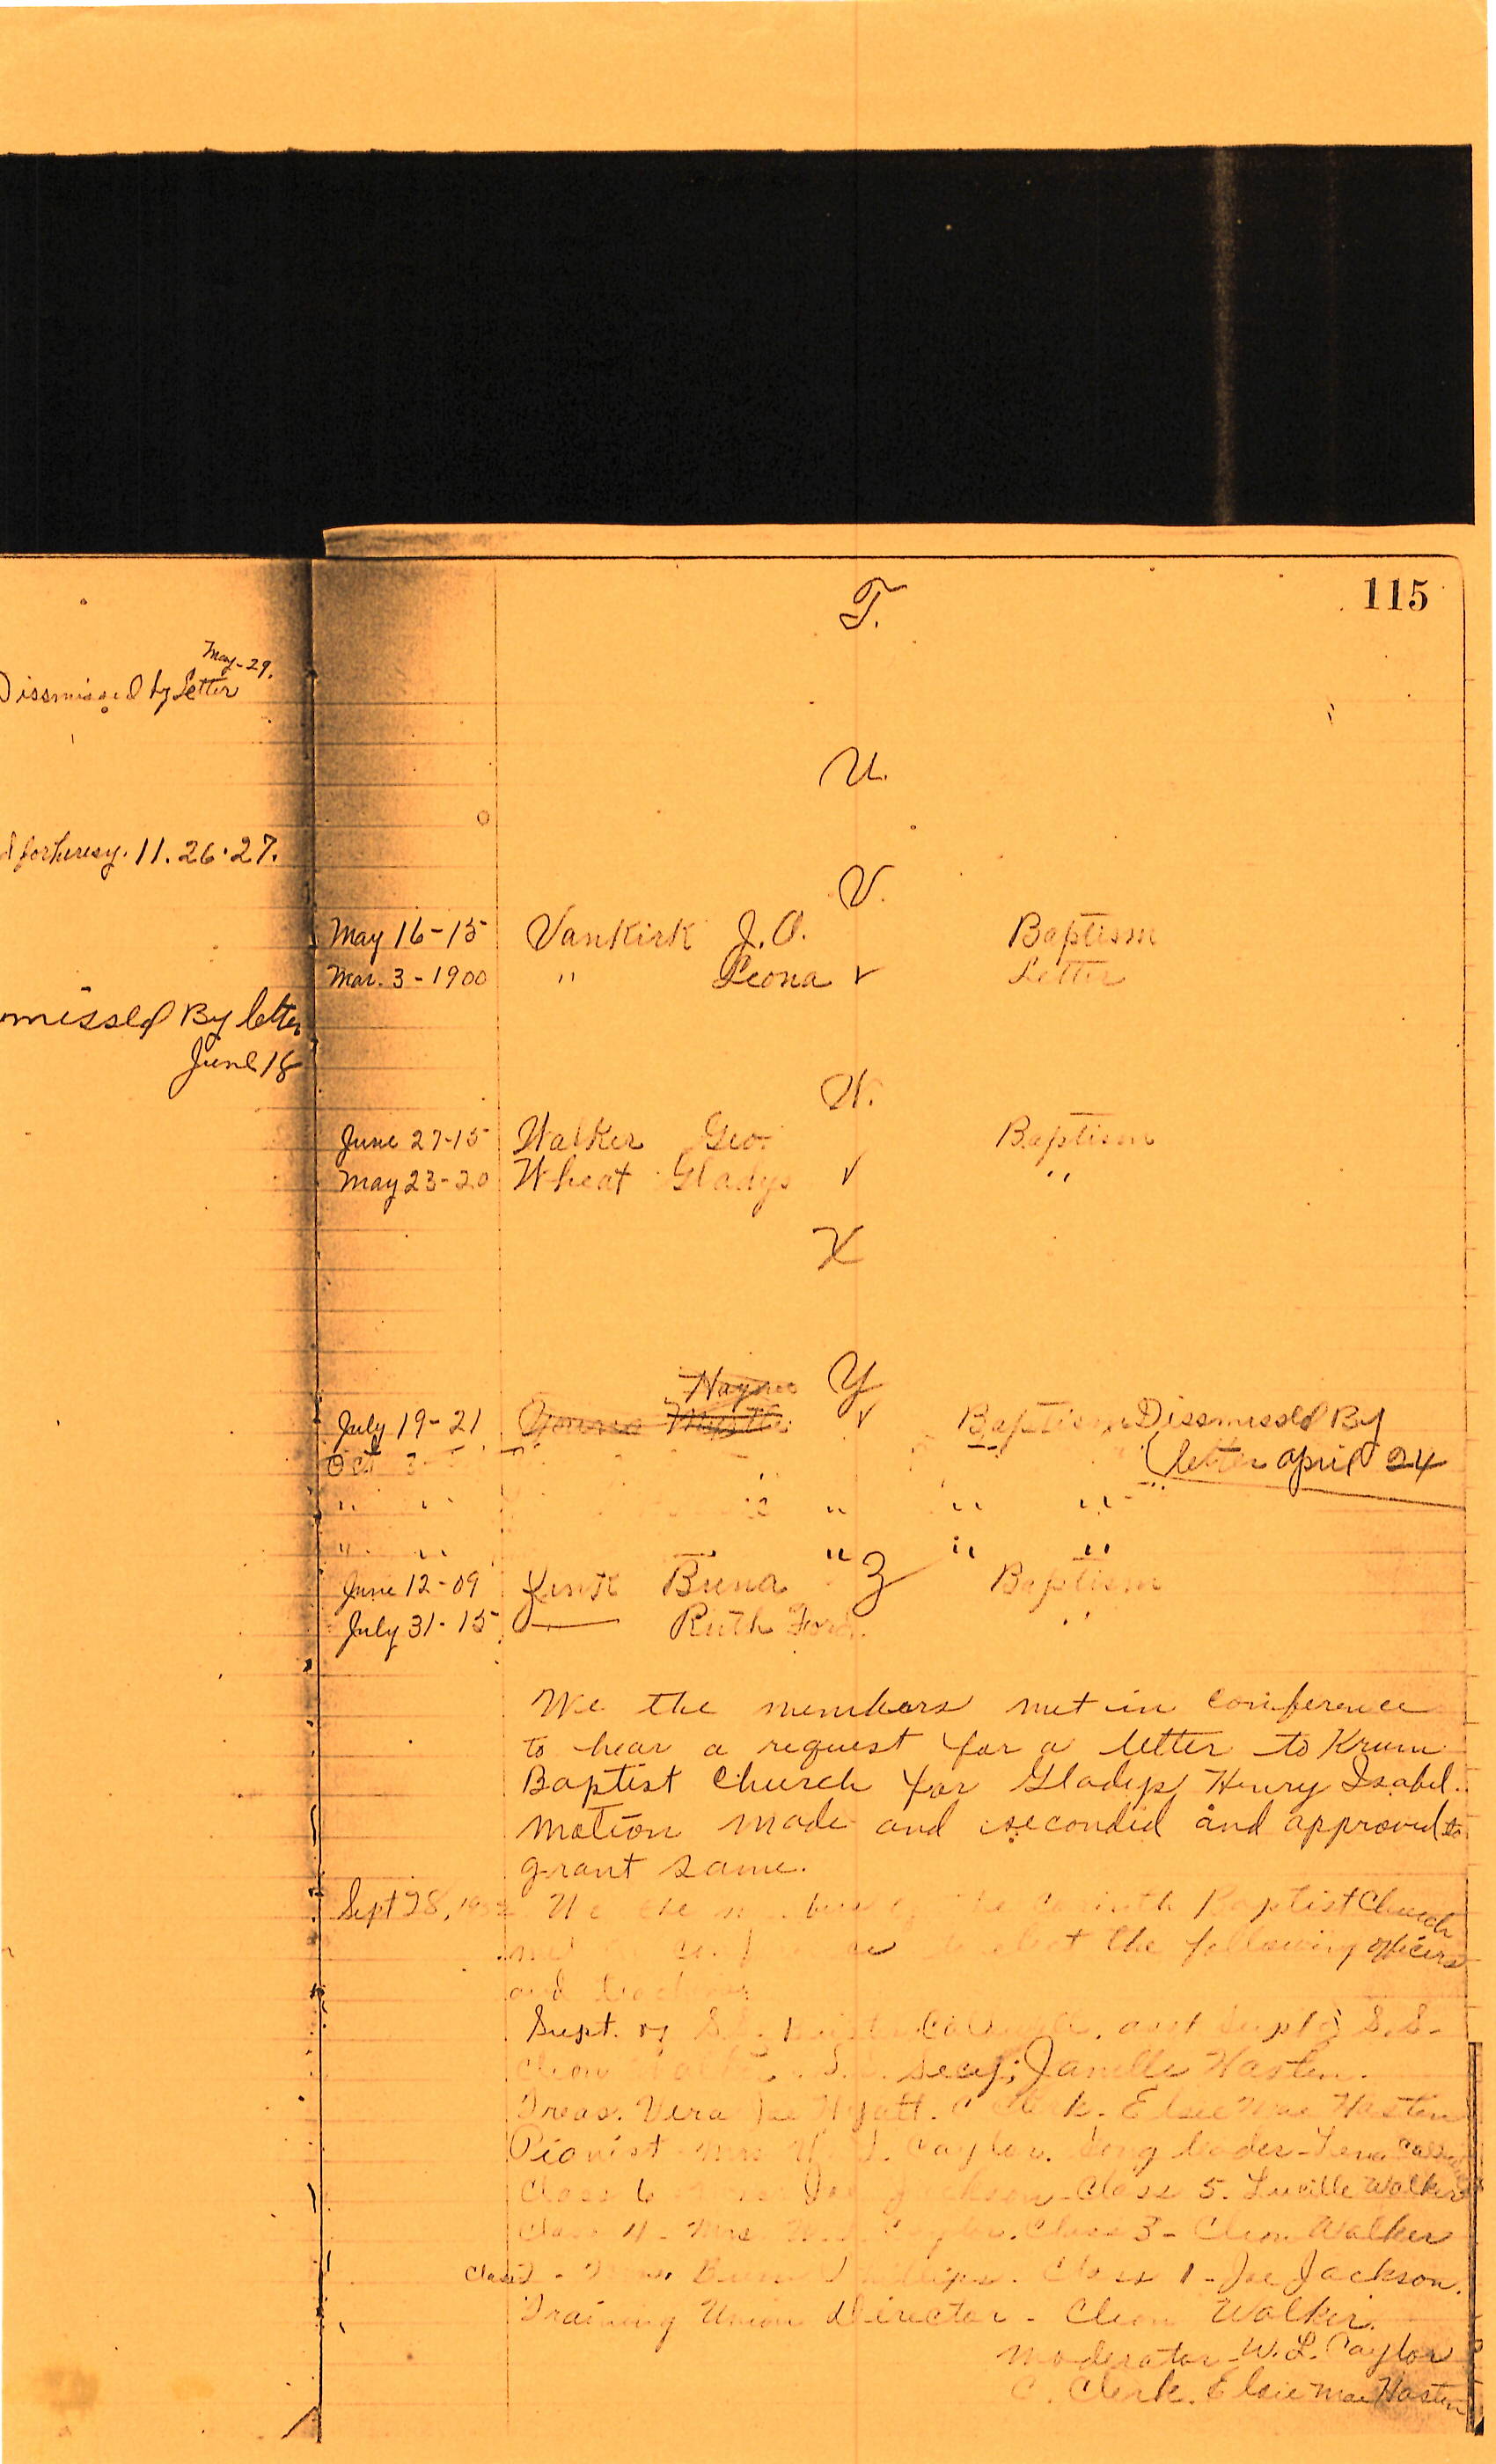 115
T.
May-29.
Dissmissed by Letter
U.
for heresy. 11.26.27.
V.
May 16-15 VanKirk J.O. Baptism
Mar. 3-1900 " Leona ✓ Letter
missed By letter
June 18
W.
June 27-15 Walker Geo. Baptism
May 23-20 Wheat Gladys ✓ "
X
Haynes Y
July 19-21 Myrtle ✓ Baptism Dissmissed By
Oct 3- letter april 24
" " " " " "
" " " " "
Z
June 12-09 Buna Baptism
July 31-15 — Ruth Ford. "
We the members met in conference
to hear a request for a letter to Krum
Baptist Church for Gladys Henry Isabel.
motion made and seconded and approved to
grant same.
Sept 28, We the of the Corinth Baptist Church
met to elect the following officers
and
Supt. of S.S. Supt of S.S.
Cleon S.S. Secy; Janelle Hasten.
Treas. Vera Jae Hyatt. C Clerk. Elsie Mae Hasten
Pianist - Mrs W. L. Caylor. Song leader - Lena
Class 6 Joe Jackson - Class 5. Lucille Walker
Class 4 - Mrs W. L. Caylor. Class 3 - Cleon Walker
Class 2 - Phillips. Class 1 - Joe Jackson.
Training Union Director - Cleon Walker.
moderator - W. L. Caylor
C. Clerk. Elsie Mae Hasten